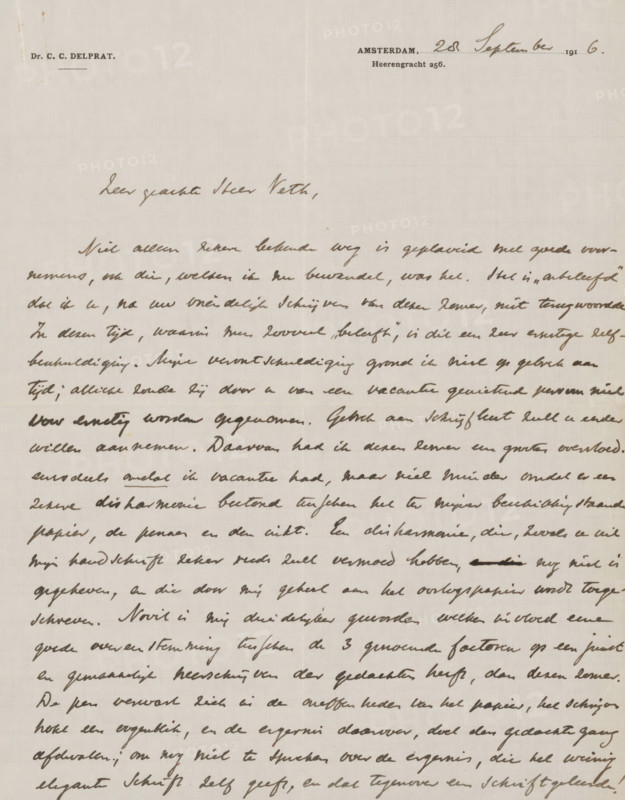 Dr. C. C. DELPRAT.
AMSTERDAM, 28 September 1916.
Heerengracht 256.
Zeer geachte Heer Veth,
Niet alleen zekere bekende weg is geplaveid met goede voor-
nemens, ook die, welken ik nu bewandel, was het. Het is „onbeleefd"
dat ik u, na uw vriendelijk schrijven van dezen zomer, niet terugwoordde
In dezen tijd, waarin men zooveel „beleeft", is dit een zeer ernstige zelf-
beschuldiging. Mijne verontschuldiging grond ik niet op gebrek aan
tijd; allicht zoude zij door u van een vacantie genietend persoon niet
voor ernstig worden opgenomen. Gebrek aan schrijflust zult u eerder
willen aannemen. Daarvan had ik dezen zomer een grooten overvloed.
eensdeels omdat ik vacantie had, maar niet minder omdat er een
zekere disharmonie bestond tusschen het te mijner beschikking staande
papier, de pennen en den inkt. Een disharmonie, die, zooals u uit
mijn handschrift zeker reeds zult vermoed hebben, nog niet is
opgeheven, en die door mij geheel aan het oorlogspapier wordt toege-
schreven. Nooit is mij duidelijker geworden welken invloed eene
goede overeenstemming tusschen de 3 genoemde factoren op een juist
en gemakkelijk neerschrijven der gedachten heeft, dan dezen zomer.
De pen verwart zich in de oneffenheden van het papier, het schrijven
hokt een oogenblik, en de ergernis daarover, doet den gedachtegang
afdwalen; om nog niet te spreken over de ergernis, die het weinig
elegante schrift zelf geeft, en dat tegenover een schriftgeleerde!
PHOTO12